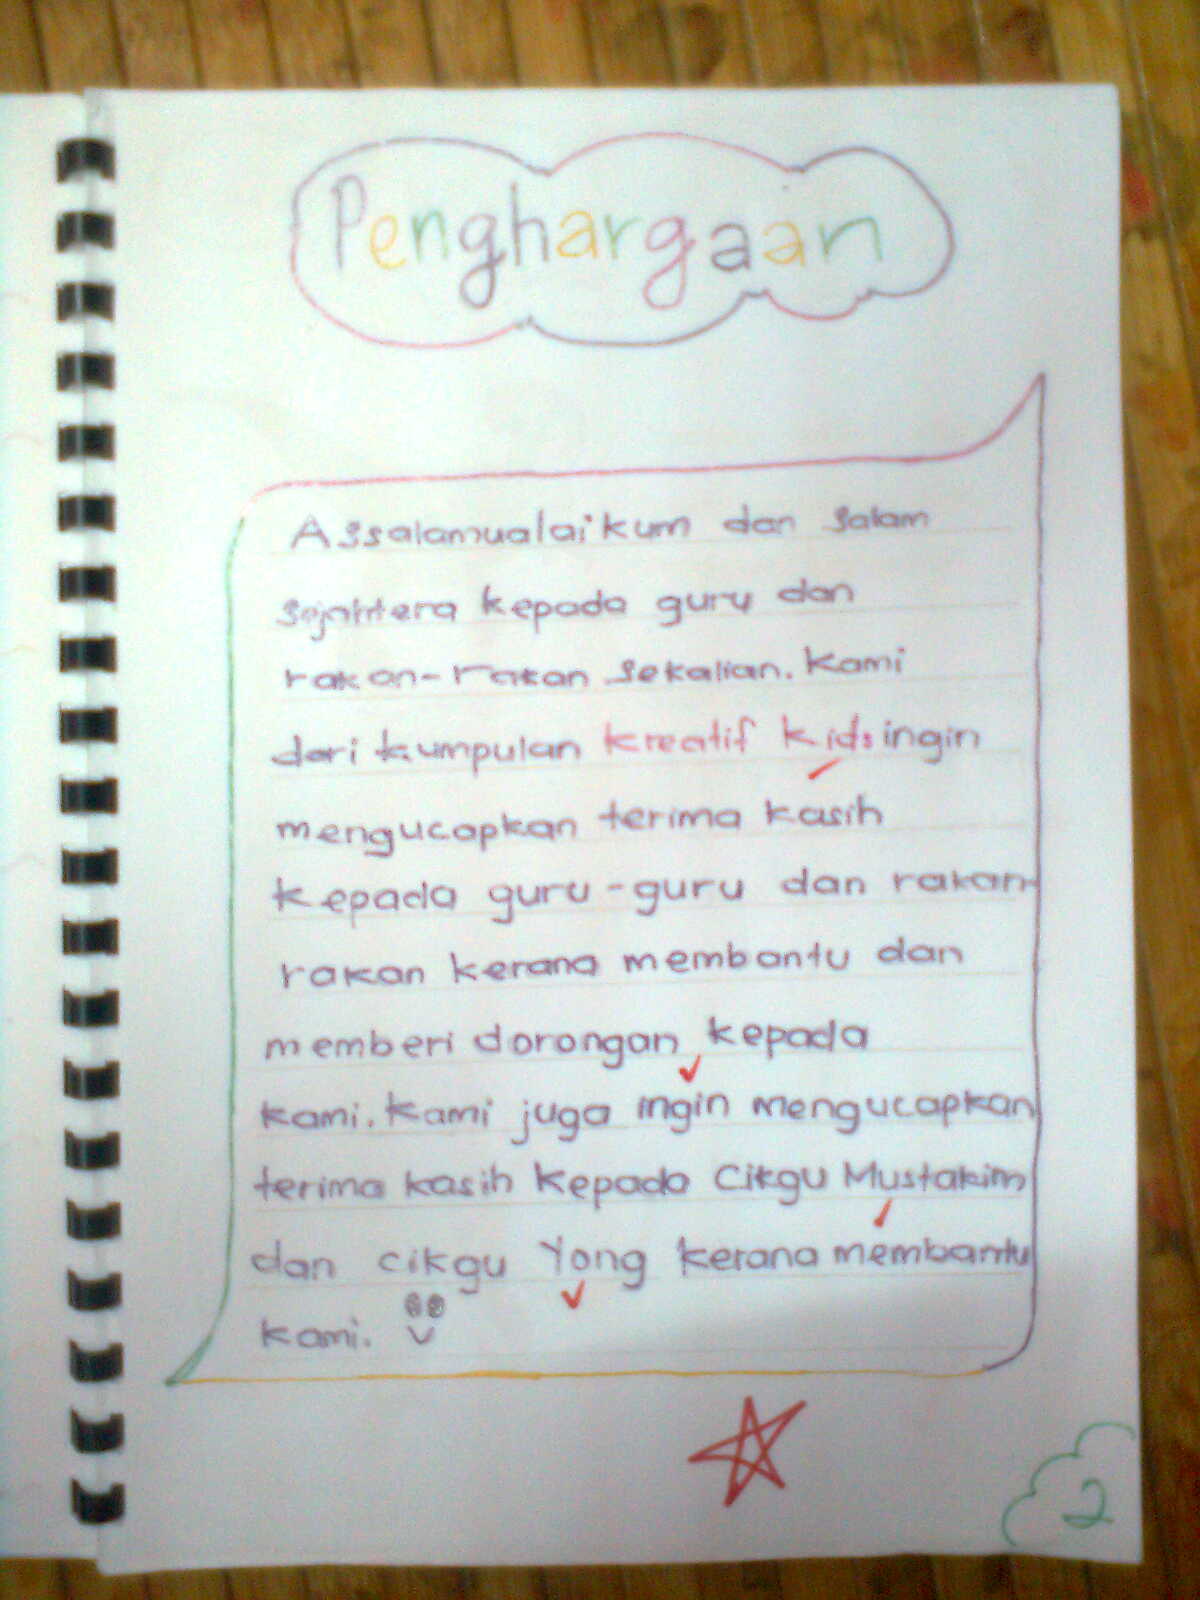 Penghargaan
Assalamualaikum dan salam
sejahtera kepada guru dan
rakan-rakan sekalian. Kami
dari kumpulan kreatif kids ingin
mengucapkan terima kasih
kepada guru-guru dan rakan-
rakan kerana membantu dan
memberi dorongan kepada
kami. Kami juga ingin mengucapkan
terima kasih kepada Cikgu Mustakim
dan cikgu Yong kerana membantu
kami.
2